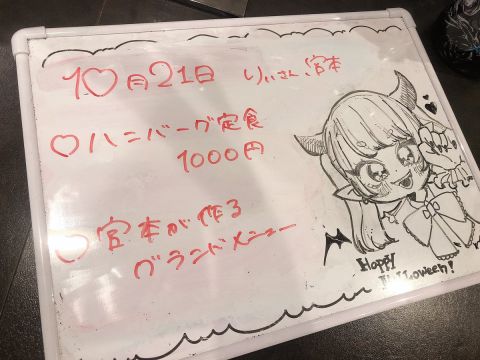 10月21日 りぃさん、宮本
♡ハンバーグ定食
1000円
♡宮本が作る
グランドメニュー
Happy
Halloween!